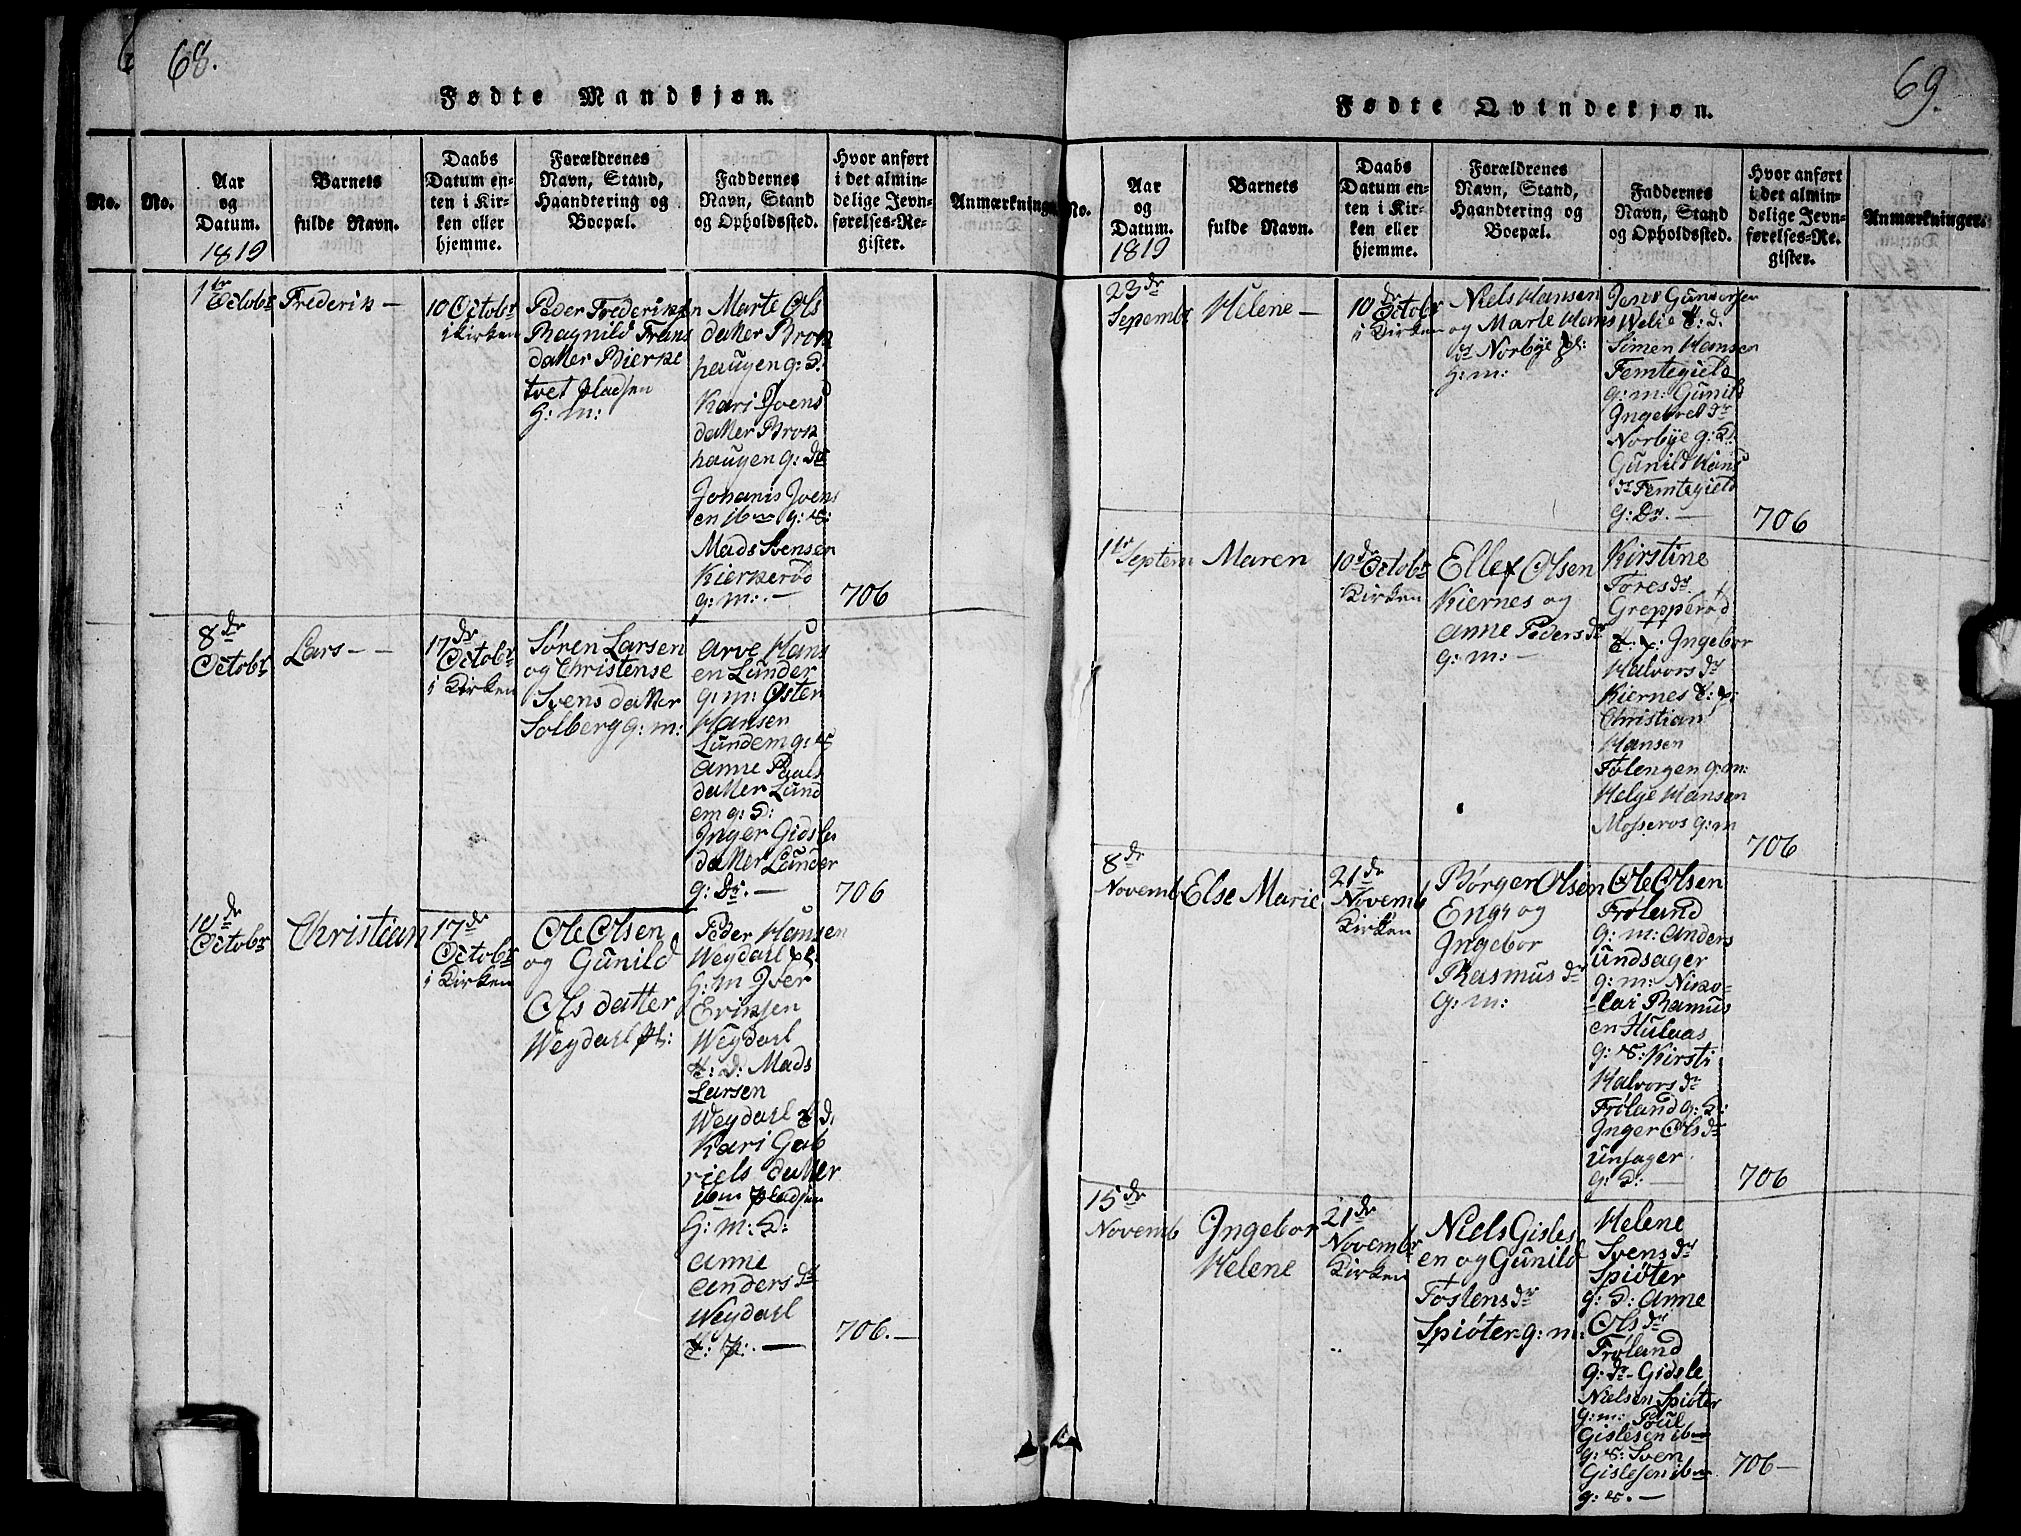 68.
Fødte Mandkjøn.
No.
No.
Aar
og
Datum.
1819
Barnets
fulde Navn.
Daabs
Datum en-
ten i Kir-
ken eller
hjemme.
Forældrenes
Navn, Stand,
Haandtering og
Boepæl.
Faddernes
Navn, Stand
og Opholdssted.
Hvor anført
i det almin-
delige Jevn-
førelses-Re-
gister.
Anmærkninge
1ᵗᵉ
Octobʳ
Frederik –
10 Octobʳ
i kirken
Peder Frederiksen
Ragnild Frans
datter Bierke
tvet pladsen
H: m:
Marte Ols
datter Brok
haugen g: D:
Kari Joens
datter Brok
haugen g: Dʳ
Johanis Joens
en ibm g: S:
Mads Svensen
Kierkerød
g: m: –
706
8ᵈᵉ
Octobʳ
Lars – –
17ᵈᵉ
Octobʳ
i Kirken
Søren Larsen
og Christense
Svensdatter
Solberg g: m:
Arve Hans
en Lunder
g: m: Østen
Hansen
Lundem g: S
Anne Paals
datter Lund
em g: D:
Inger Gidsle
datter Lunder
g: Dʳ. –
706
10ᵈᵉ
Octobʳ
Christian
17ᵈᵉ
Octobʳ
i Kirken
Ole Olsen
og Gunild
Ols datter
Weydahl pl:
Peder Hansen
Weydahl pl:
H: m Iver
Eriksen
Weydahl
t: d: Mads
Larsen
Weydahl t d.
Kari Gab
riels datter
ibm pladsen
H: m: D:
Anne
Anders dʳ
Weydahl
t: p: –
706. –
69.
Fødte Qvindekjøn.
No.
Aar
og
Datum.
1819
Barnets
fulde Navn.
Daabs
Datum en-
ten i Kir-
ken eller
hjemme.
Forældrenes
Navn, Stand,
Haandtering og
Boepæl.
Faddernes
Navn, Stand
og Opholdssted.
Hvor anført
i det almin-
delige Jevn-
førelses-Re-
gister.
Anmærkninger.
23ᵈᵉ
Sepembʳ
Helene –
10ᵈᵉ
Octobʳ
i Kirken
Niels Hansen
og Marte Hans
dʳ Norbye pl:
H: m:
Jens Gundersen
Welie t: d.
Simen Hansen
Femtegield
g: m: Gunild
Ingebret dʳ
Norbye g: D:
Gunild Hans
dʳ Femtegield
g: Dʳ. –
706
1ᵗᵉ Septem
Maren
10ᵈᵉ Octobʳ
Kirken
Ellef Olsen
Kiernes og
Anne Pedersdʳ
g: m: –
Kirstine
Toresdʳ
Grepperød
t: p: Ingebor
Halvors dʳ
Kiernes t: p:
Christian
Hansen
Folengen g: m:
Helge Hansen
Mosseros g: m
706
8ᵈᵉ
Novemb
Else Marie
21ᵈᵉ
Novemb
Kirken
Børger Olsen
Engʳ og
Ingebor
Rasmus dʳ
g: m:
Ole Olsen
Frøland
g: m: Anders
Undsager
g: m: Niko-
lai Ramus
en Hulaas
g: S: Kirsti
Halvors dʳ
Frøland g: D:
Inger Ols dʳ
Unsager
g: D: –
706
15ᵈᵉ
Novemb
Ingebor
Helene
21ᵈᵉ
Novembʳ
Kirken
Niels Gisles
en og Gunild
Tostens dʳ
Spiøter g: m:
Helene
Svens dʳ
Spiøter
g: D: Anne
Ols dʳ
Frøland
g: dʳ – Gidsle
Nielsen Spiøter
g: m: Poul
Gislesen ibm
g: S: Sven
Gislesen ibm
g: S. –
706 –